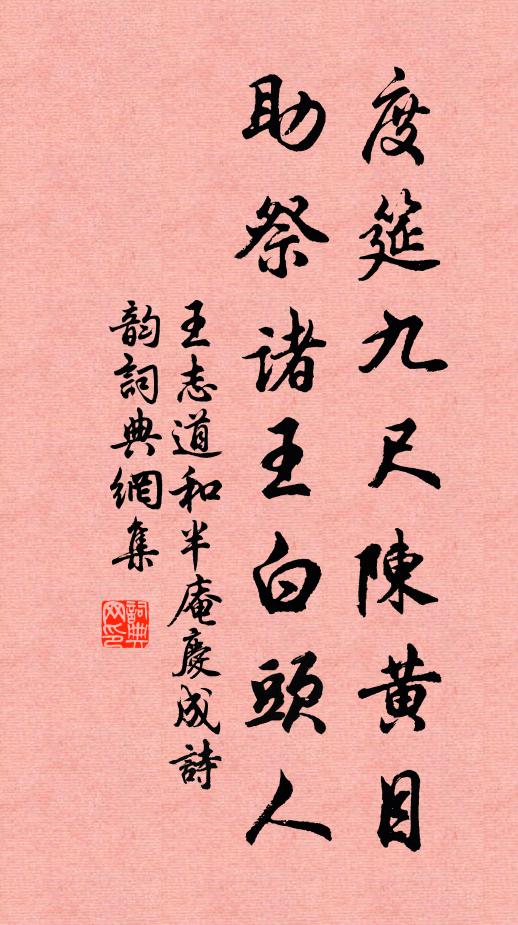 度筵九尺陳黄目
助祭諸王白頭人
王志道和半庵慶成詩
韵詞典網集
詞典網印